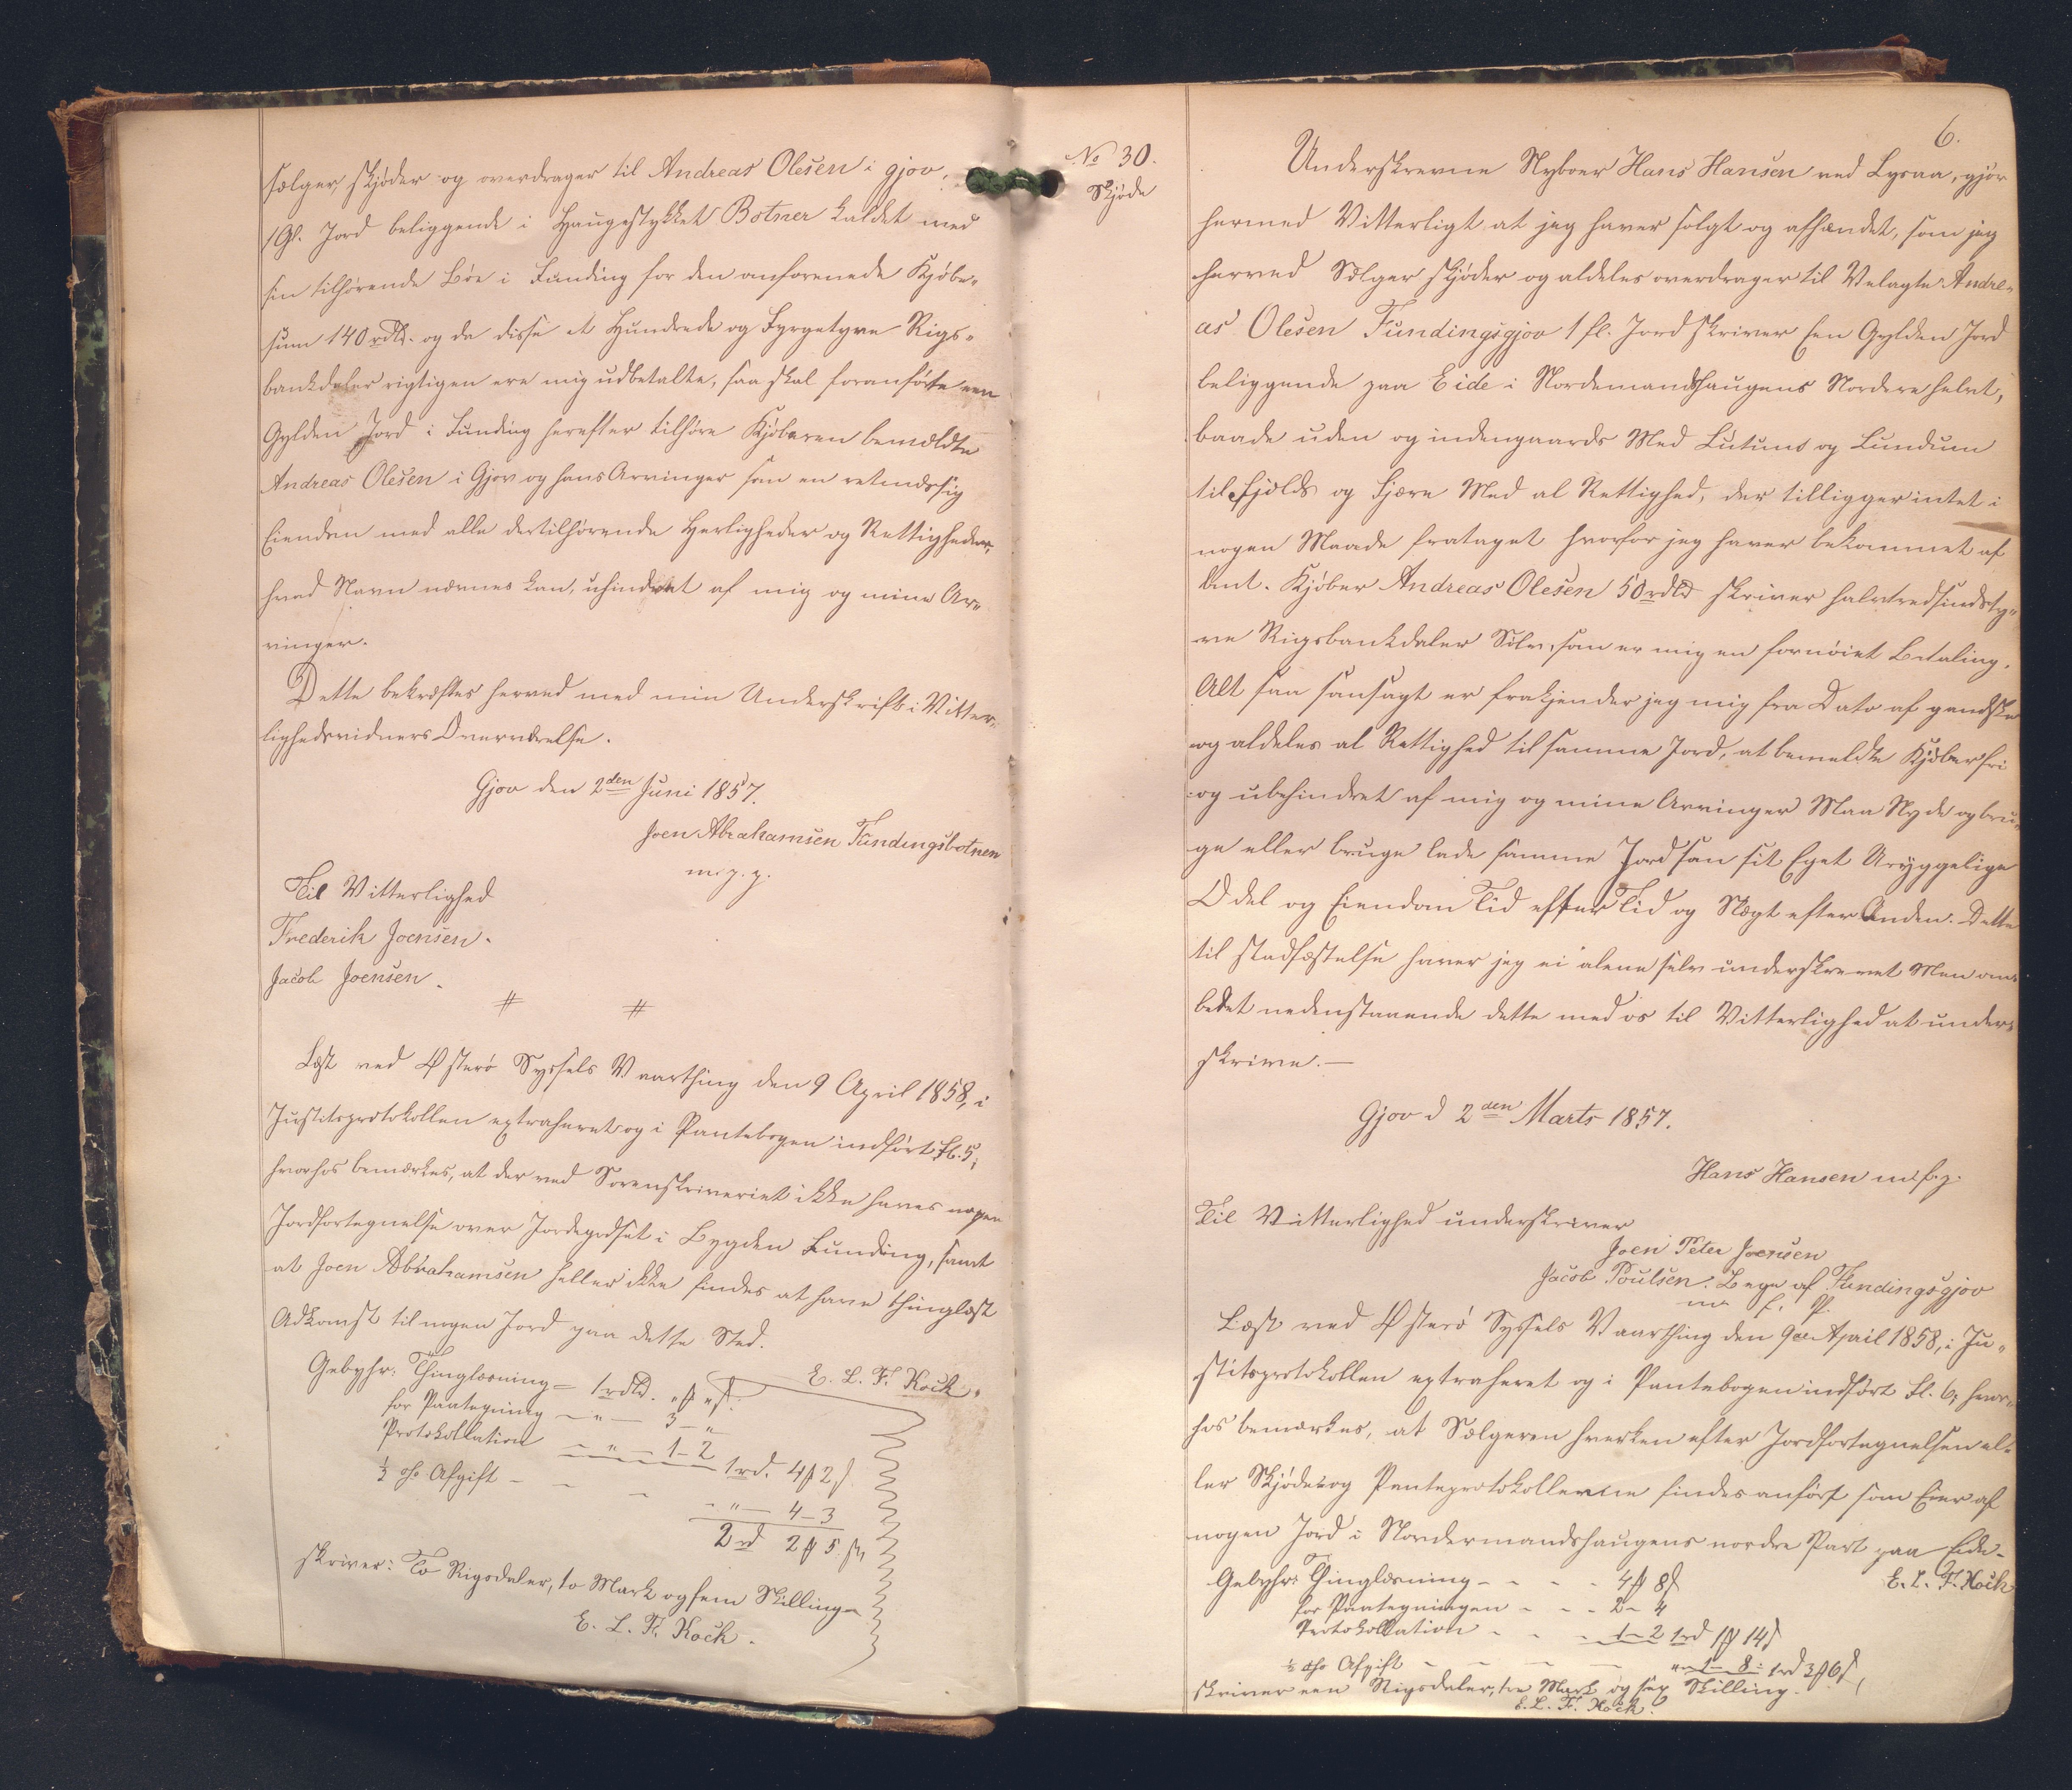 sælger, skjøder og overdrager til Andreas Olesen i gjov,
1 Gl. Jord beliggende i Haugestykket Botner kaldet med
sin tilhørende Bøe i Funding for den anførenede Kjøbe-
sum 140 rdlr. og da disse et Hundrede og Fyrgetyve Rigs-
bankdaler rigtigen ere mig udbetalte, saa skal foranførte een
Gylden Jord i Funding herefter tilhøre Kjøberen bemældte
Andreas Olesen i Gjov og hans Arvinger som en retmæssig
Eiendom med alle dertilhørende Herligheder og Rettigheder,
hvad Navn nævnes kan, uhindret af mig og mine Ar-
vinger.
Dette bekræftes herved med min Underskrift i Vitter-
lighedsvidners Overværelse.
Gjov den 2den Juni 1857.
Joen Abrahamsen Fundingsbotnen
m. p. p.
Til Vitterlighed
Frederik Joensen.
Jacob Joensen.
# #
Læst ved Østerø Syssels Vaarthing den 9 April 1858, i
Justitsprotokollen extraheret og i Pantebogen indført Fl. 5,
hvorhos bemærkes, at der ved Sorenskriveriet ikke haves nogen
Jordfortegnelse over Jordegodset i Bygden Funding, samt
at Joen Abrahamsen heller ikke findes at have thinglæst
Adkomst til nogen Jord paa dette Sted.
E. L. F. Koch.
Gebyhr: Thinglæsning = 1 rdlr. " ß " ß.
for Paategning – " – 3 – "
Protokollation – " – 1 – 2 1 rd. 4 ß 2 ß
½ % Afgift – – – " – 4 – 3
2 rd 2 ß 5 ß,
skriver: To Rigsdaler, to Mark og fem Skilling
E. L. F. Koch.
No 30.
Skjøde
6.
Underskrevne Nyboer Hans Hansen ved Lysaa, gjør
hermed Vitterligt at jeg haver solgt og afhændet, som jeg
herved Sælger skjøder og aldeles overdrager til Velagte Andre-
as Olesen Fundingsgjov 1 fl. Jord skriver Een Gylden Jord
beliggende paa Eide i Nordemandshaugens Nordere halvt,
baade uden og indengaards Med Lutum og Lundum
til Fjelds og Fjære Med al Rettighed, der tilligger intet i
nogen Maade frataget hvorfor jeg haver bekommet af
bmt. Kjøber Andreas Olesen 50 rdlr skriver halvtredsindsty-
ve Rigsbankdaler Sølv, som er mig en fornøiet Betaling.
Alt saa somsagt er frakjender jeg mig fra Dato af gandske
og aldeles al Rettighed til samme Jord, at bemeldte Kjøber fri
og ubehindret af mig og mine Arvinger Maa Nyde og bru-
ge eller bruge lade samme Jord som sit Eget Uryggelige
Odel og Eiendom Tid effter Tid og Slægt efter Anden. Dette
til stadfæstelse haver jeg ei alene selv underskrevet Men om-
bedet nedenstaaende dette med os til Vitterlighed at under-
skrive. –
Gjov d 2den Marts 1857.
Hans Hansen m. f. p.
Til Vitterlighed underskriver
Joen Peter Joensen
Jacob Poulsen. Begge af Fundingsgjov
m. f. P.
Læst ved Østerø Syssels Vaarthing den 9de April 1858, i Ju-
stitsprotokollen extraheret og i Pantebogen indført Fl. 6, hvor-
hos bemærkes, at Sælgeren hverken efter Jordfortegnelsen el-
ler Skjøde og Panteprotokollerne findes anført som Eier af
nogen Jord i Nordermandshaugens nordre Part paa Eide.
E. L. F. Koch
Gebyhr: Thinglæsning – – – 4 ß 8 ß
for Paategningen – – – 2 – 4
Protokollation – – – 1 – 2 1 rd 1 ß 14 ß
½ % Afgift – – – – " – 1 – 8 : 1 rd 3 ß 6 ß,
skriver een Rigsdaler, tre Mark og sex Skilling.
E. L. F. Koch.